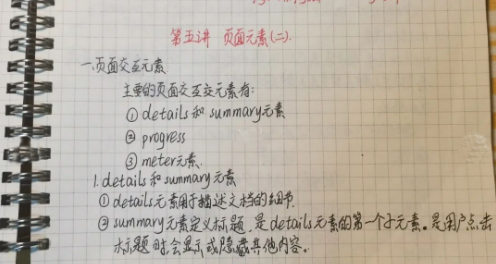 第五讲 页面元素(二).
一.页面交互元素
主要的页面交互交元素有:
① details和summary元素
② progress
③ meter元素.
1. details和summary元素
① details元素用于描述文档的细节.
② summary元素定义标题,是details元素的第一个子元素。是用户点击
标题时会显示或隐藏其他内容。